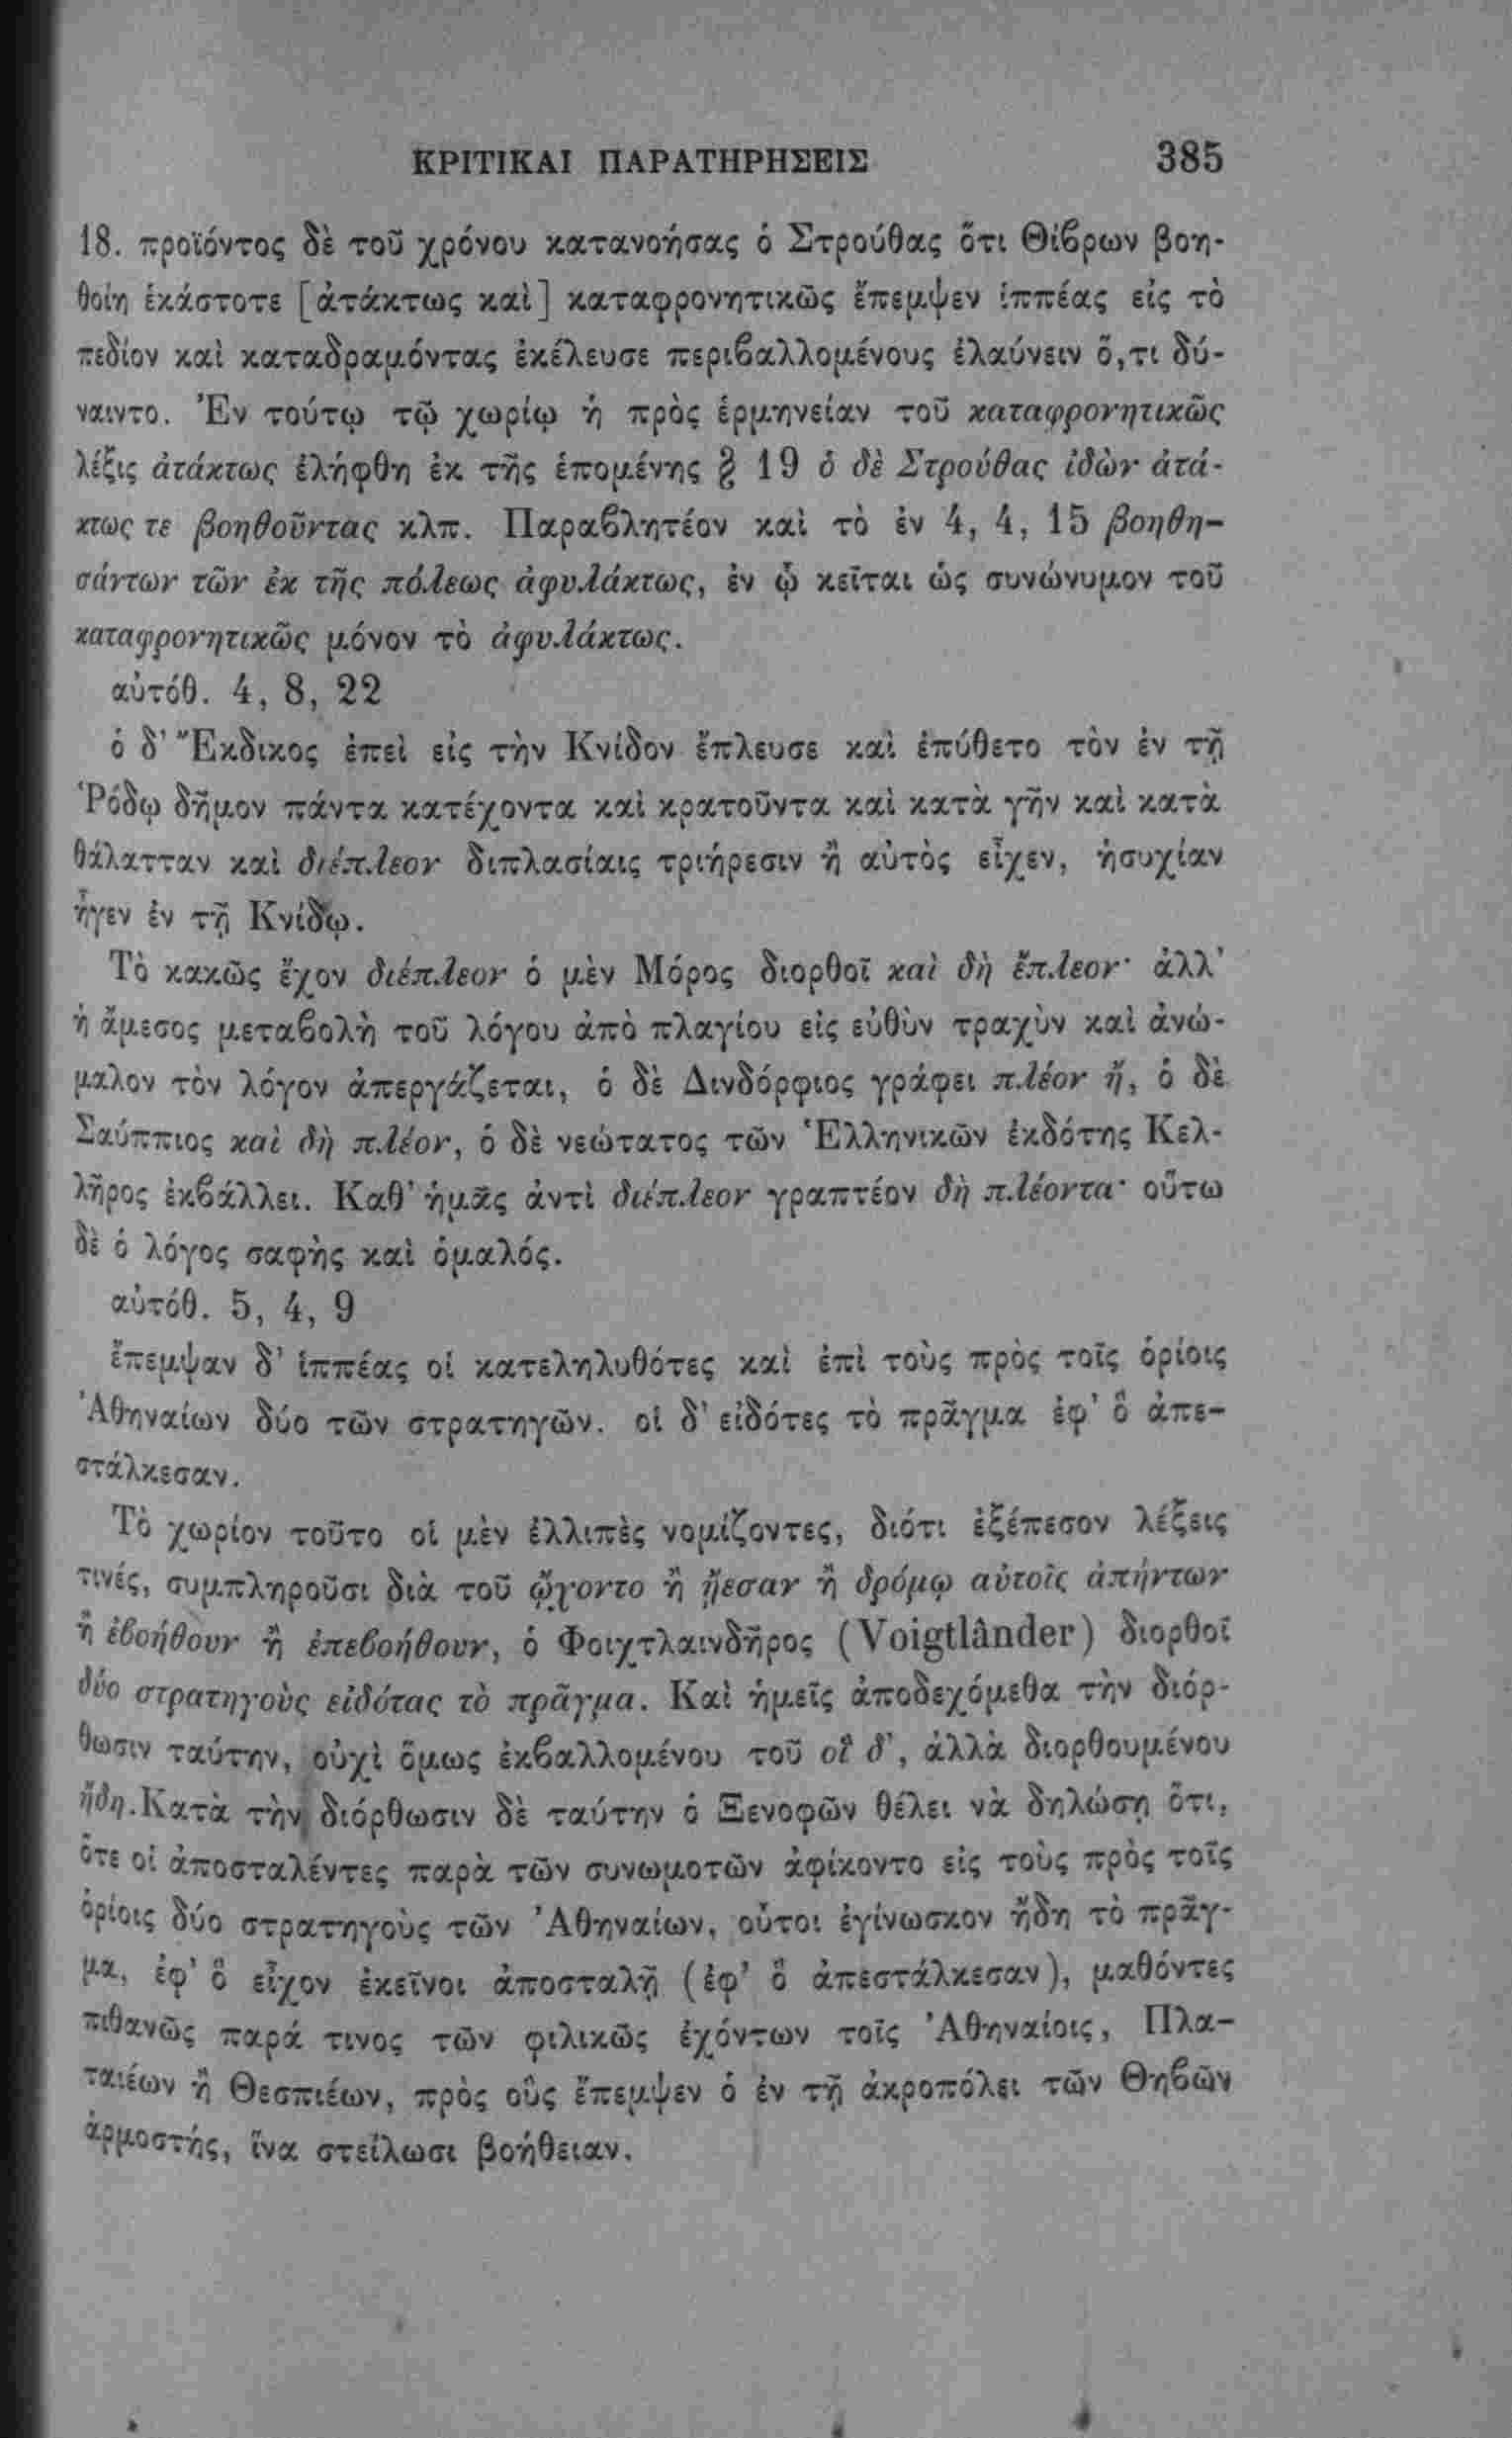 ΚΡΙΤΙΚΑΙ ΠΑΡΑΤΗΡΗΣΕΙΣ 385
18. προϊόντος δὲ τοῦ χρόνου κατανοήσας ὁ Στρούθας ὅτι Θίβρων βοη-
θοίη ἑκάστοτε [ἀτάκτως καὶ] καταφρονητικῶς ἔπεμψεν ἱππέας εἰς τὸ
πεδίον καὶ καταδραμόντας ἐκέλευσε περιβαλλομένους ἐλαύνειν ὅ,τι δύ-
ναιντο. Ἐν τούτῳ τῷ χωρίῳ ἡ πρὸς ἑρμηνείαν τοῦ καταφρονητικῶς
λέξις ἀτάκτως ἐλήφθη ἐκ τῆς ἑπομένης § 19 ὁ δὲ Στρούθας ἰδὼν ἀτά-
κτως τε βοηθοῦντας κλπ. Παραβλητέον καὶ τὸ ἐν 4, 4, 15 βοηθη-
σάντων τῶν ἐκ τῆς πόλεως ἀφυλάκτως, ἐν ᾧ κεῖται ὡς συνώνυμον τοῦ
καταφρονητικῶς μόνον τὸ ἀφυλάκτως.
αὐτόθ. 4, 8, 22
ὁ δ' Ἔκδικος ἐπεὶ εἰς τὴν Κνίδον ἔπλευσε καὶ ἐπύθετο τὸν ἐν τῇ
Ῥόδῳ δῆμον πάντα κατέχοντα καὶ κρατοῦντα καὶ κατὰ γῆν καὶ κατὰ
θάλατταν καὶ διέπλεον διπλασίαις τριήρεσιν ἢ αὐτὸς εἶχεν, ἡσυχίαν
ἦγεν ἐν τῇ Κνίδῳ.
Τὸ κακῶς ἔχον διέπλεον ὁ μὲν Μόρος διορθοῖ καὶ δὴ ἔπλεον· ἀλλ'
ἡ ἄμεσος μεταβολὴ τοῦ λόγου ἀπὸ πλαγίου εἰς εὐθὺν τραχὺν καὶ ἀνώ-
μαλον τὸν λόγον ἀπεργάζεται, ὁ δὲ Δινδόρφιος γράφει πλέον ἤ, ὁ δὲ
Σαύππιος καὶ δὴ πλέον, ὁ δὲ νεώτατος τῶν Ἑλληνικῶν ἐκδότης Κελ-
λῆρος ἐκβάλλει. Καθ' ἡμᾶς ἀντὶ διέπλεον γραπτέον δὴ πλέοντα· οὕτω
δὲ ὁ λόγος σαφὴς καὶ ὁμαλός.
αὐτόθ. 5, 4, 9
ἔπεμψαν δ' ἱππέας οἱ κατεληλυθότες καὶ ἐπὶ τοὺς πρὸς τοῖς ὁρίοις
Ἀθηναίων δύο τῶν στρατηγῶν. οἱ δ' εἰδότες τὸ πρᾶγμα ἐφ' ὃ ἀπε-
στάλκεσαν.
Τὸ χωρίον τοῦτο οἱ μὲν ἐλλιπὲς νομίζοντες, διότι ἐξέπεσον λέξεις
τινές, συμπληροῦσι διὰ τοῦ ᾤχοντο ἢ ᾔεσαν ἢ δρόμῳ αὐτοῖς ἀπήντων
ἢ ἐβοήθουν ἢ ἐπεβοήθουν, ὁ Φοιχτλαινδῆρος (Voigtlânder) διορθοῖ
δύο στρατηγοὺς εἰδότας τὸ πρᾶγμα. Καὶ ἡμεῖς ἀποδεχόμεθα τὴν διόρ-
θωσιν ταύτην, οὐχὶ ὅμως ἐκβαλλομένου τοῦ οἳ δ', ἀλλὰ διορθουμένου
ἤδη. Κατὰ τὴν διόρθωσιν δὲ ταύτην ὁ Ξενοφῶν θέλει νὰ δηλώσῃ ὅτι,
ὅτε οἱ ἀποσταλέντες παρὰ τῶν συνωμοτῶν ἀφίκοντο εἰς τοὺς πρὸς τοῖς
ὁρίοις δύο στρατηγοὺς τῶν Ἀθηναίων, οὗτοι ἐγίνωσκον ἤδη τὸ πρᾶγ-
μα, ἐφ' ὃ εἶχον ἐκεῖνοι ἀποσταλῇ (ἐφ' ὃ ἀπεστάλκεσαν), μαθόντες
πιθανῶς παρά τινος τῶν φιλικῶς ἐχόντων τοῖς Ἀθηναίοις, Πλα-
ταιέων ἢ Θεσπιέων, πρὸς οὓς ἔπεμψεν ὁ ἐν τῇ ἀκροπόλει τῶν Θηβῶν
ἁρμοστής, ἵνα στείλωσι βοήθειαν.